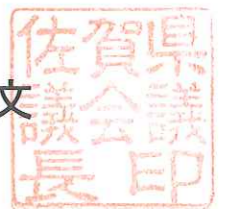 文
佐賀県
議会議
長印